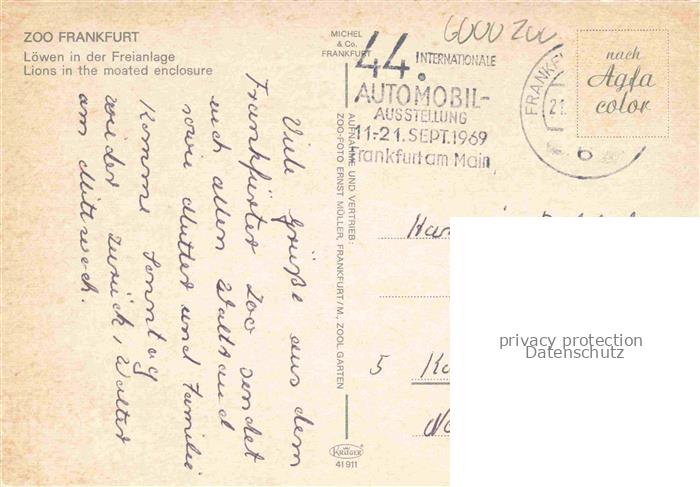 ZOO FRANKFURT
Löwen in der Freianlage
Lions in the moated enclosure
MICHEL
& Co.
FRANKFURT
6000 ZOO
44.
INTERNATIONALE
AUTOMOBIL-
AUSSTELLUNG
11.-21. SEPT. 1969
Frankfurt am Main
FRANKF
21
6
nach
Agfa
color
Viele Grüße aus dem
Frankfurter Zoo sendet
euch allen Waltraud
sowie Mutter und Familie
Komme Sonntag
wieder zurück, Walter
am Mittwoch.
AUFNAHME UND VERTRIEB:
ZOO-FOTO ERNST MÜLLER, FRANKFURT/M., ZOOL. GARTEN
5
privacy protection
Datenschutz
KRÜGER
41911